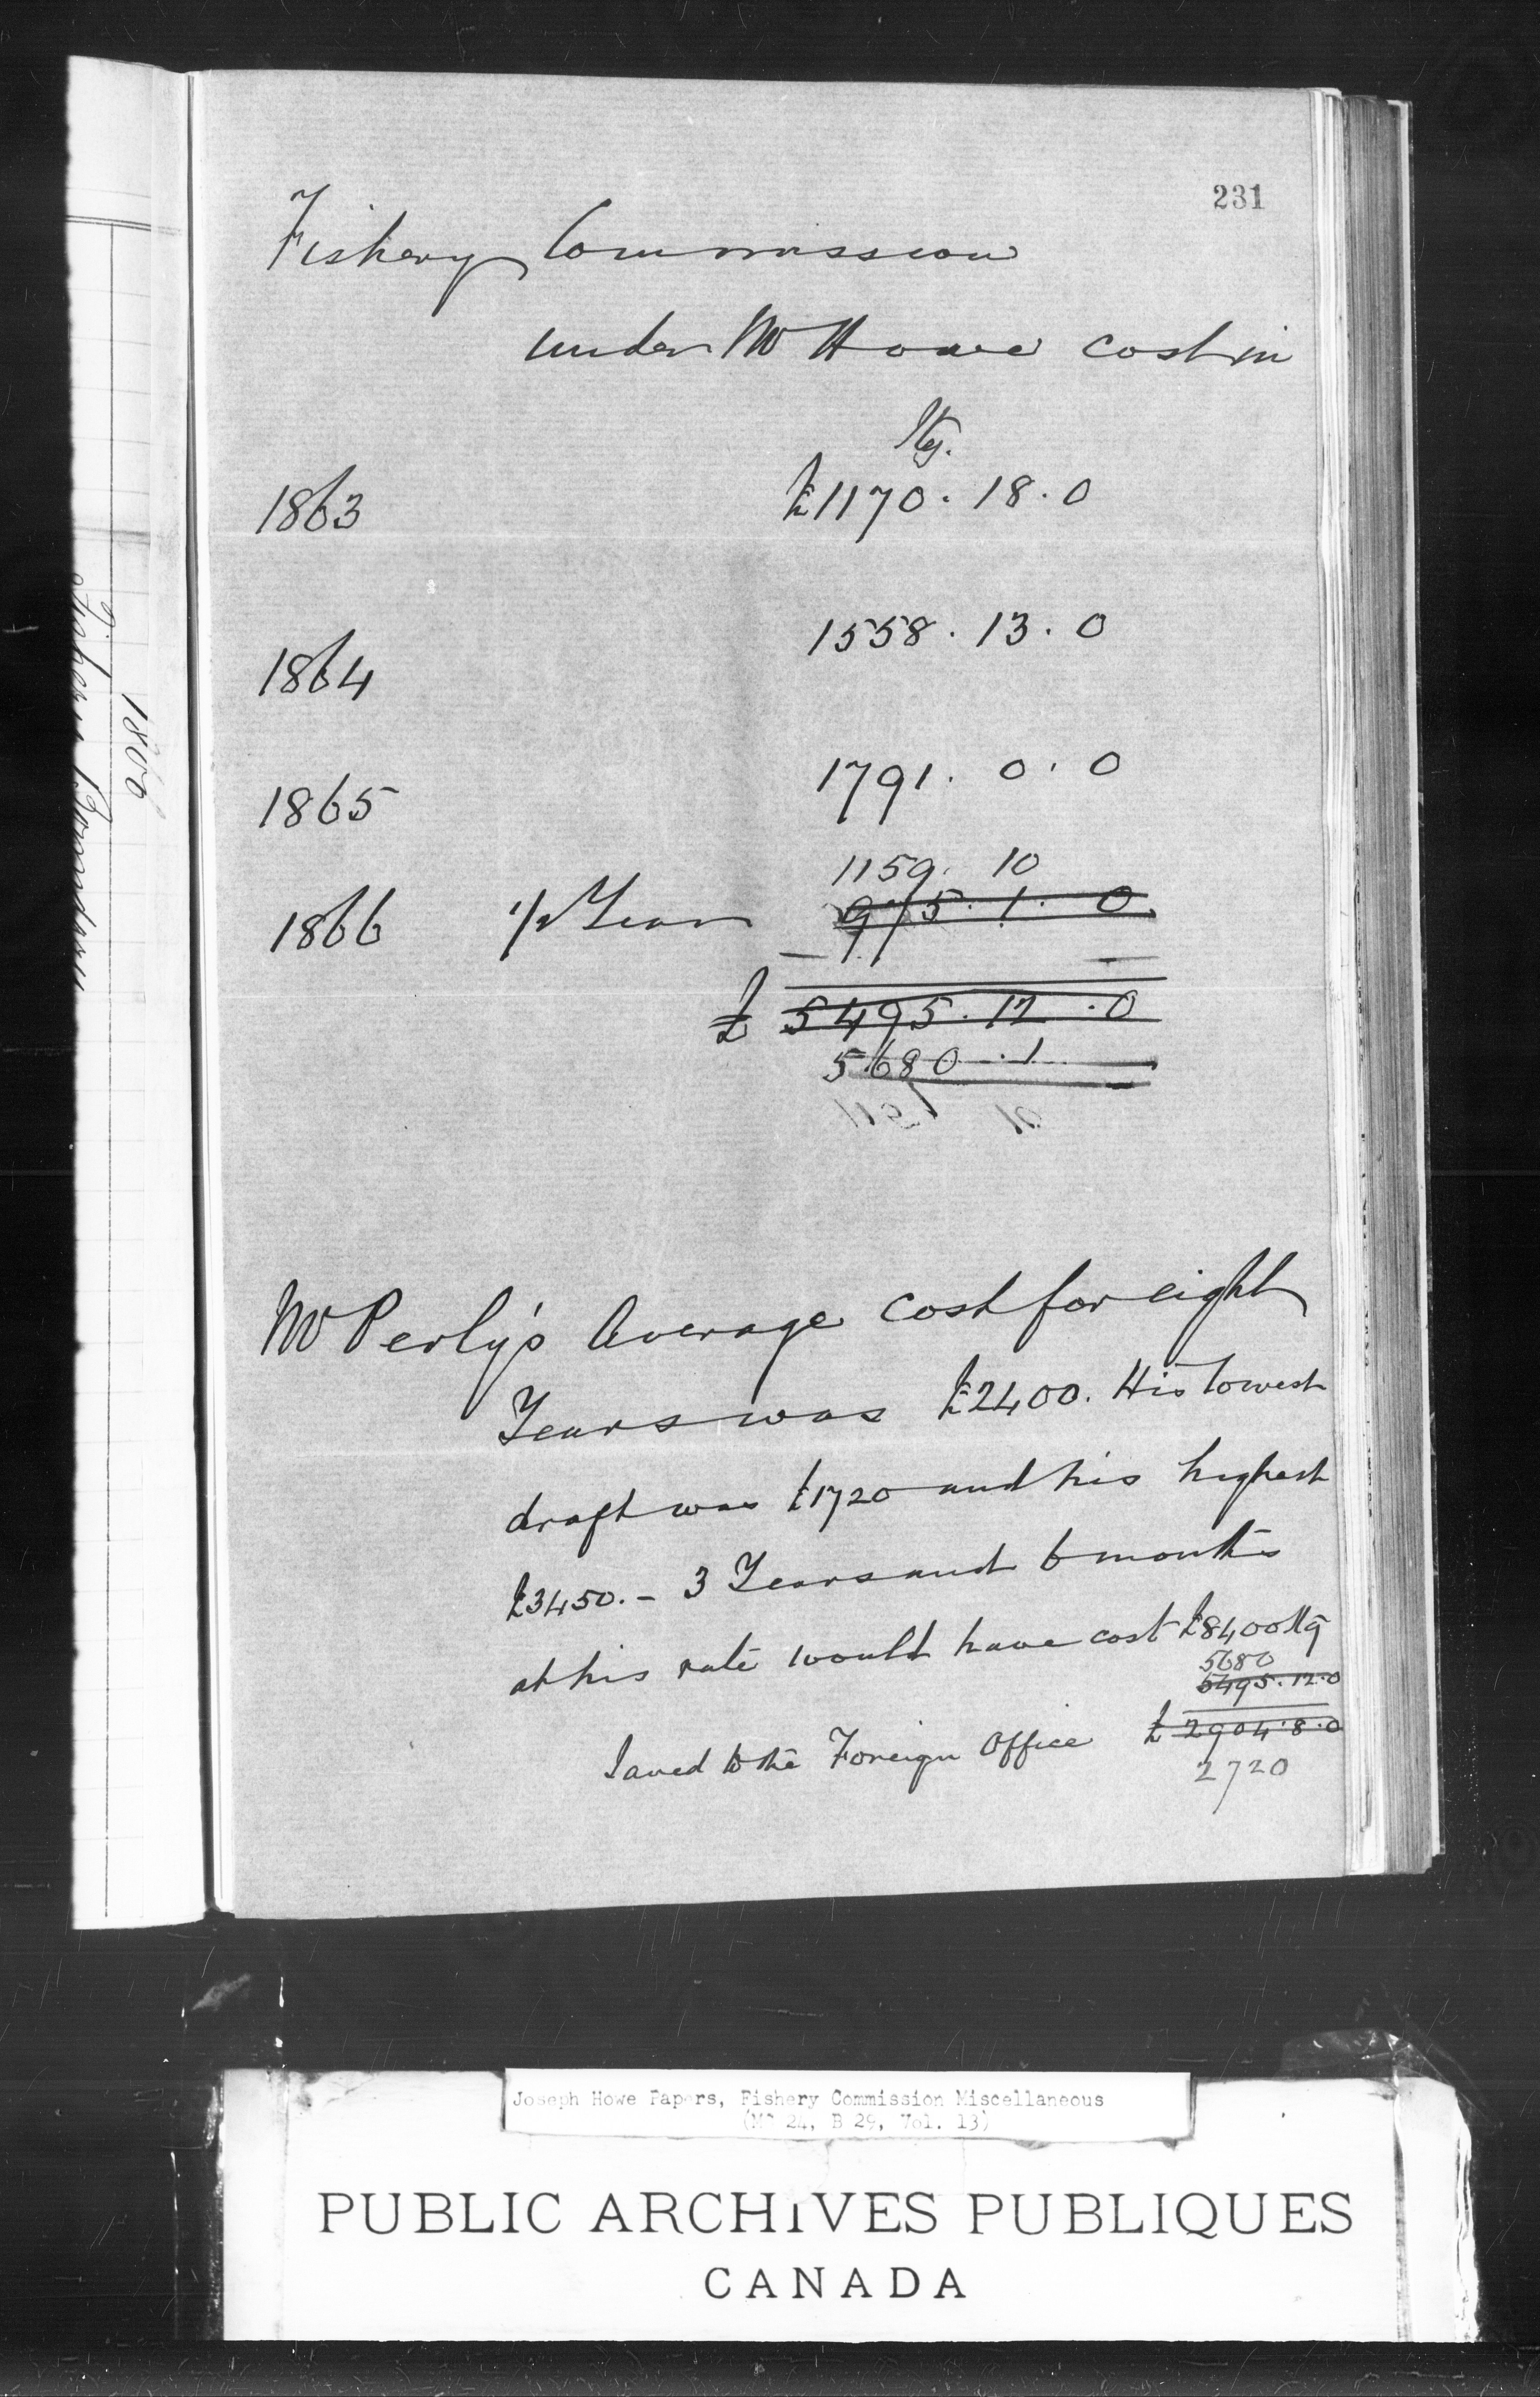 231
Fishery Commission
under Mr Howe cost in
Stg.
1863 £1170 . 18 . 0
1864 1558 . 13 . 0
1865 1791 . 0 . 0
1159 . 10
1866 1/2 Year 975 . 1 . 0
£ 5495 . 12 . 0
5680 . 1
Mr Perly's Average cost for eight
Years was £2400. His lowest
draft was £1720 and his highest
£3450. - 3 Years and 6 months
at his rate would have cost £8400 Stg
5680
5495 . 12 . 0
Saved to the Foreign Office £ 2904 . 8 . 0
2720
1866
Fishery Boundary
Joseph Howe Papers, Fishery Commission Miscellaneous
(MG 24, B 29, Vol. 13)
PUBLIC ARCHIVES PUBLIQUES
CANADA